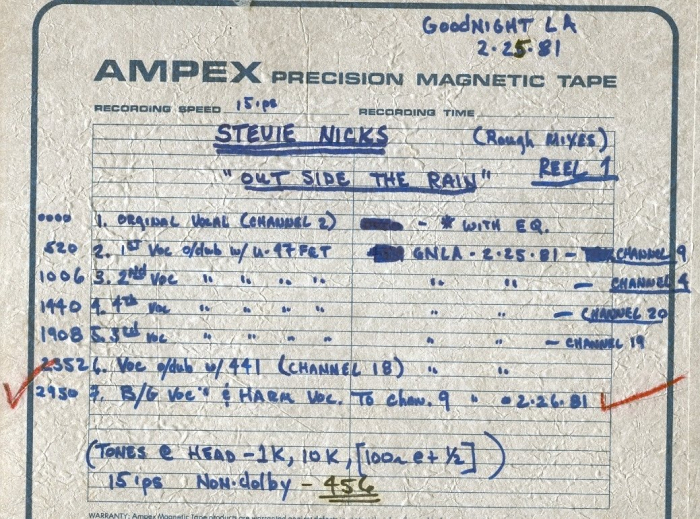 GOODNIGHT LA
2.25.81
AMPEX PRECISION MAGNETIC TAPE
RECORDING SPEED 15 ips RECORDING TIME
STEVIE NICKS (Rough MIXES)
"OUT SIDE THE RAIN" REEL 1
0000 1. ORGINAL VOCAL (CHANNEL 2) - * WITH EQ.
520 2. 1ST VOC o/dub w/ U-47 FET GNLA - 2-25-81 - CHANNEL 9
1006 3. 2nd VOC " " " " " " - CHANNEL 4
1440 4. 4th VOC " " " " " " - CHANNEL 20
1908 5. 3rd VOC " " " " " " - CHANNEL 19
2352 6. VOC o/dub w/ 441 (CHANNEL 18) " "
2950 7. B/G VOC'S & HARM VOC. TO CHAN. 9 " 2.26.81
(TONES @ HEAD - 1K, 10K, [100~ @ + 1/2])
15 ips NON-dolby - 456